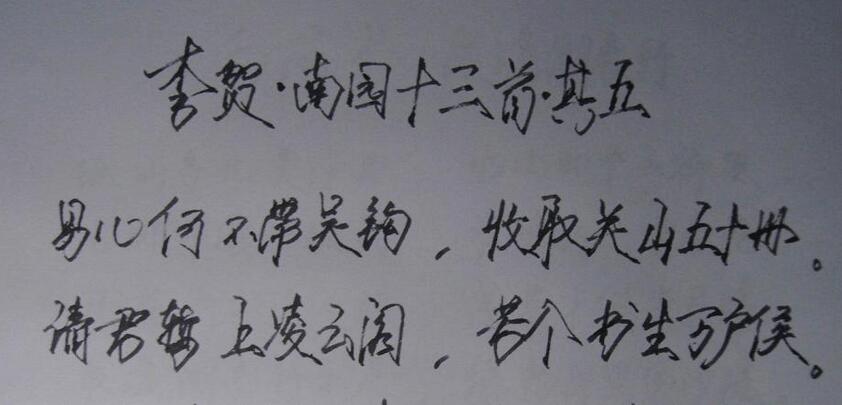 李贺·南园十三首·其五
男儿何不带吴钩，收取关山五十州。
请君暂上凌云阁，若个书生万户侯。